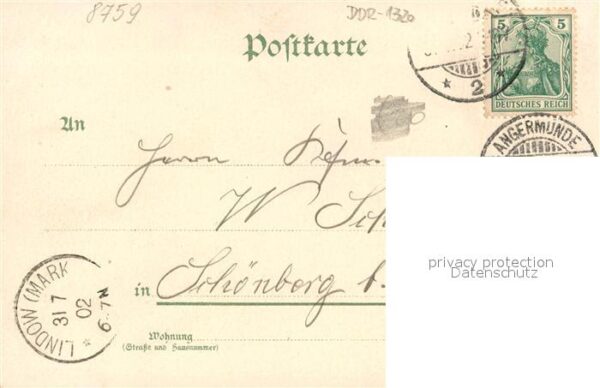 8759
DDR-1320
Postkarte
5 5
DEUTSCHES REICH
2
ANGERMÜNDE
An
Herrn
W
privacy protection
Datenschutz
LINDOW (MARK
31 7
02
6-7N
in Schönberg b.
Wohnung
(Straße und Hausnummer)